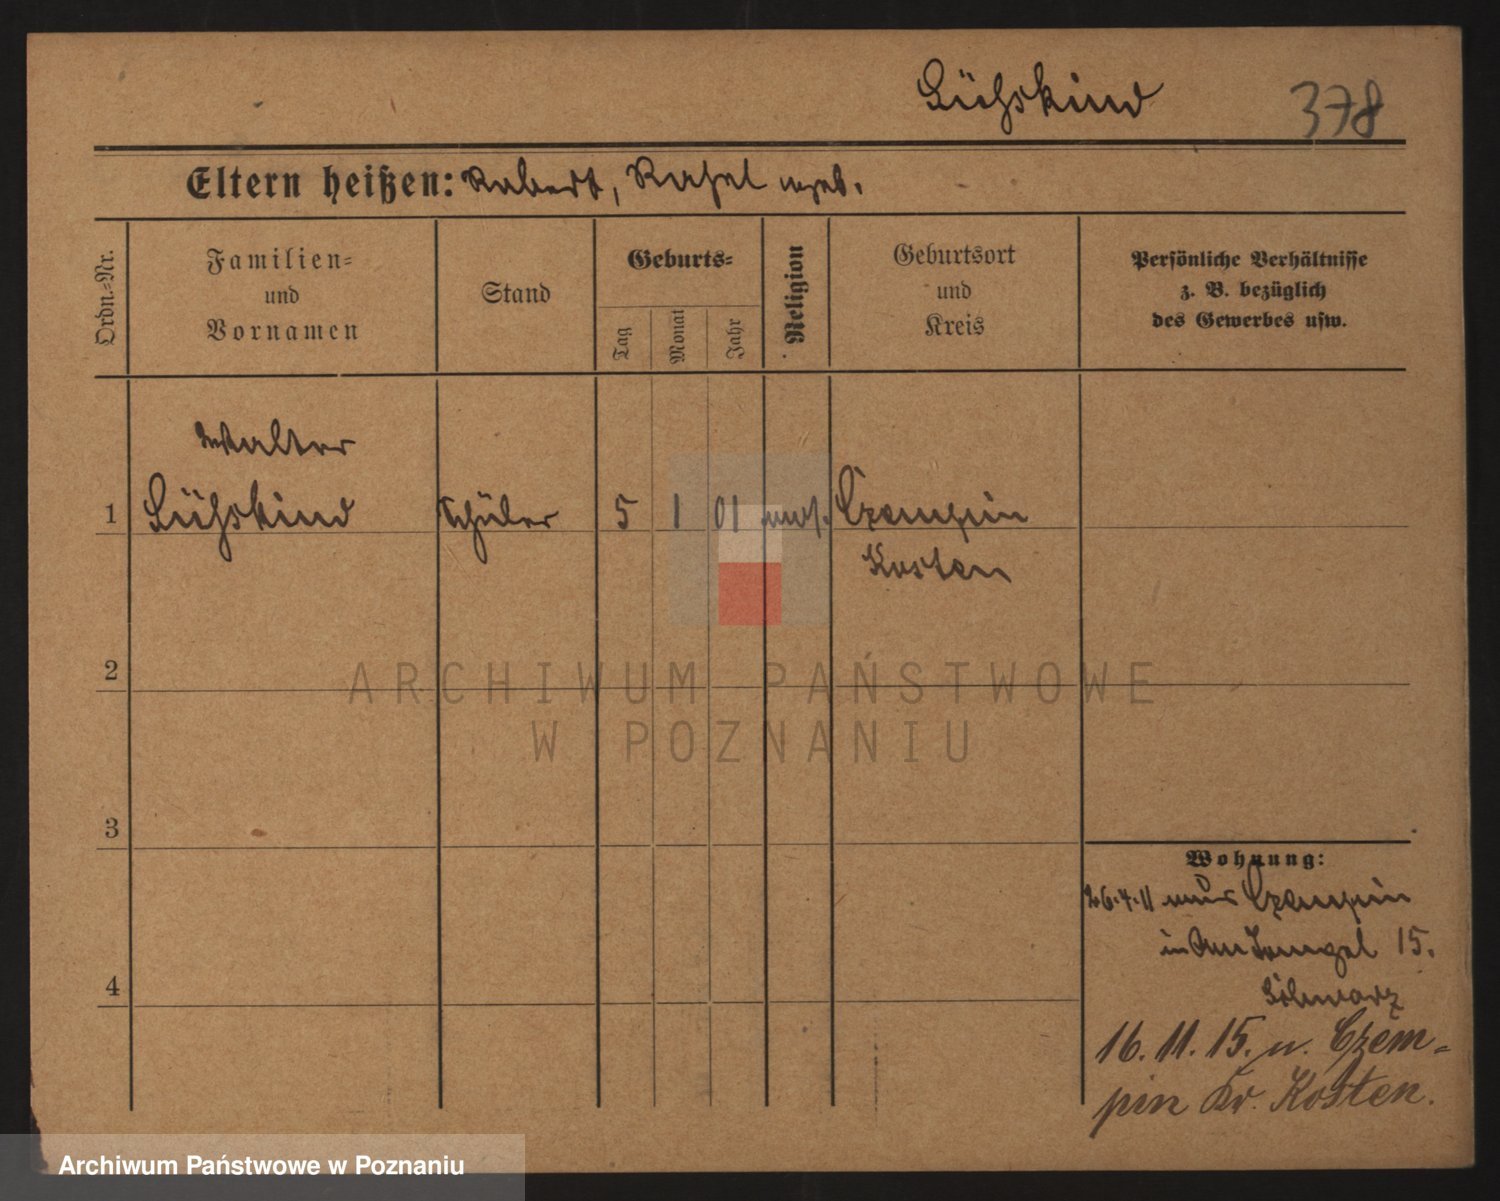 Süßkind 378
Eltern heißen: Robert, Rahel ungeb.
Ordn.-Nr.
Familien-
und
Vornamen
Stand
Geburts-
Tag
Monat
Jahr
Religion
Geburtsort
und
Kreis
Persönliche Verhältnisse
z. B. bezüglich
des Gewerbes usw.
Walter
1 Süßkind Schüler 5 1 01 mos. Czempin
Kosten
2
ARCHIWUM PAŃSTWOWE
W POZNANIU
3
Wohnung:
26.4.11 aus Czempin
15.
Schwarz
4
16.11.15. n. Czem-
pin Kr. Kosten.
Archiwum Państwowe w Poznaniu